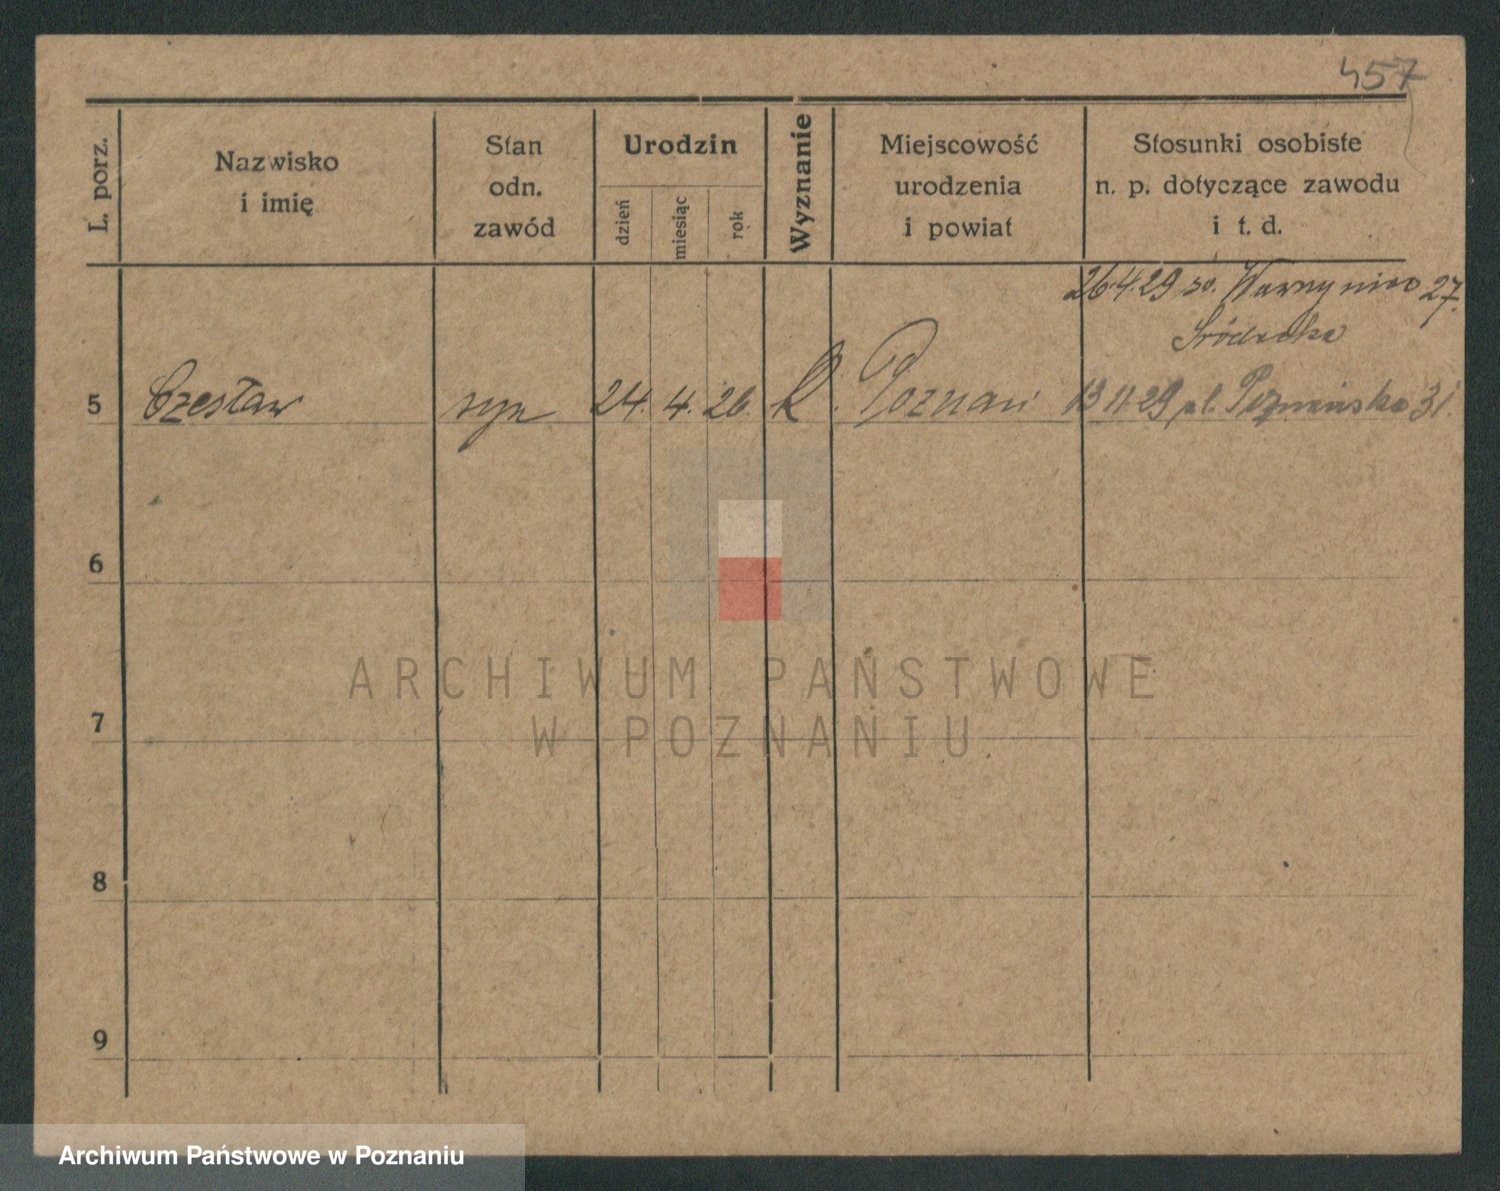 457
L. porz.
Nazwisko
i imię
Stan
odn.
zawód
Urodzin
dzień
miesiąc
rok
Wyznanie
Miejscowość
urodzenia
i powiat
Stosunki osobiste
n. p. dotyczące zawodu
i t. d.
26.4.29 27.
Śródecka
5 Czesław syn 24. 4. 26 K. Poznań 13.11.29 pl. Poznańska 31.
6
7
8
9
ARCHIWUM PAŃSTWOWE
W POZNANIU
Archiwum Państwowe w Poznaniu